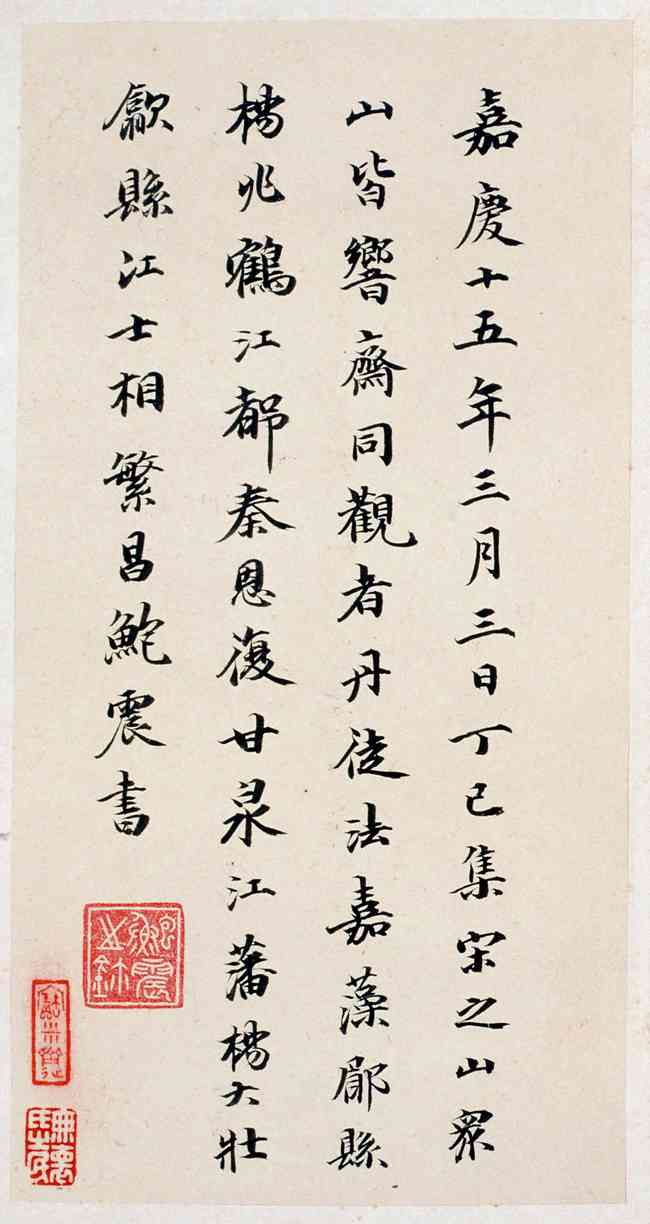 嘉慶十五年三月三日丁巳集宋之山衆
山皆響齋同觀者丹徒法嘉藻郿縣
楊兆鶴江都秦恩復甘泉江藩楊大壯
歙縣江士相繁昌鮑震書